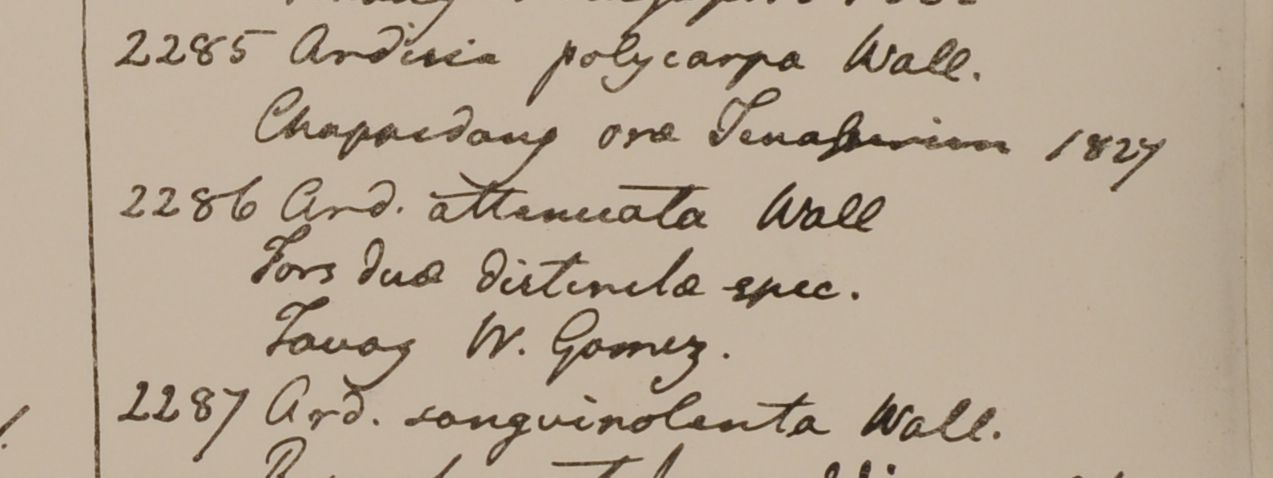 2285 Ardisia polycarpa Wall.
Chappedong oræ Tenasserim 1827
2286 Ard. attenuata Wall
Fors duæ distinctæ spec.
Tavoy W. Gomez.
2287 Ard. sanguinolenta Wall.